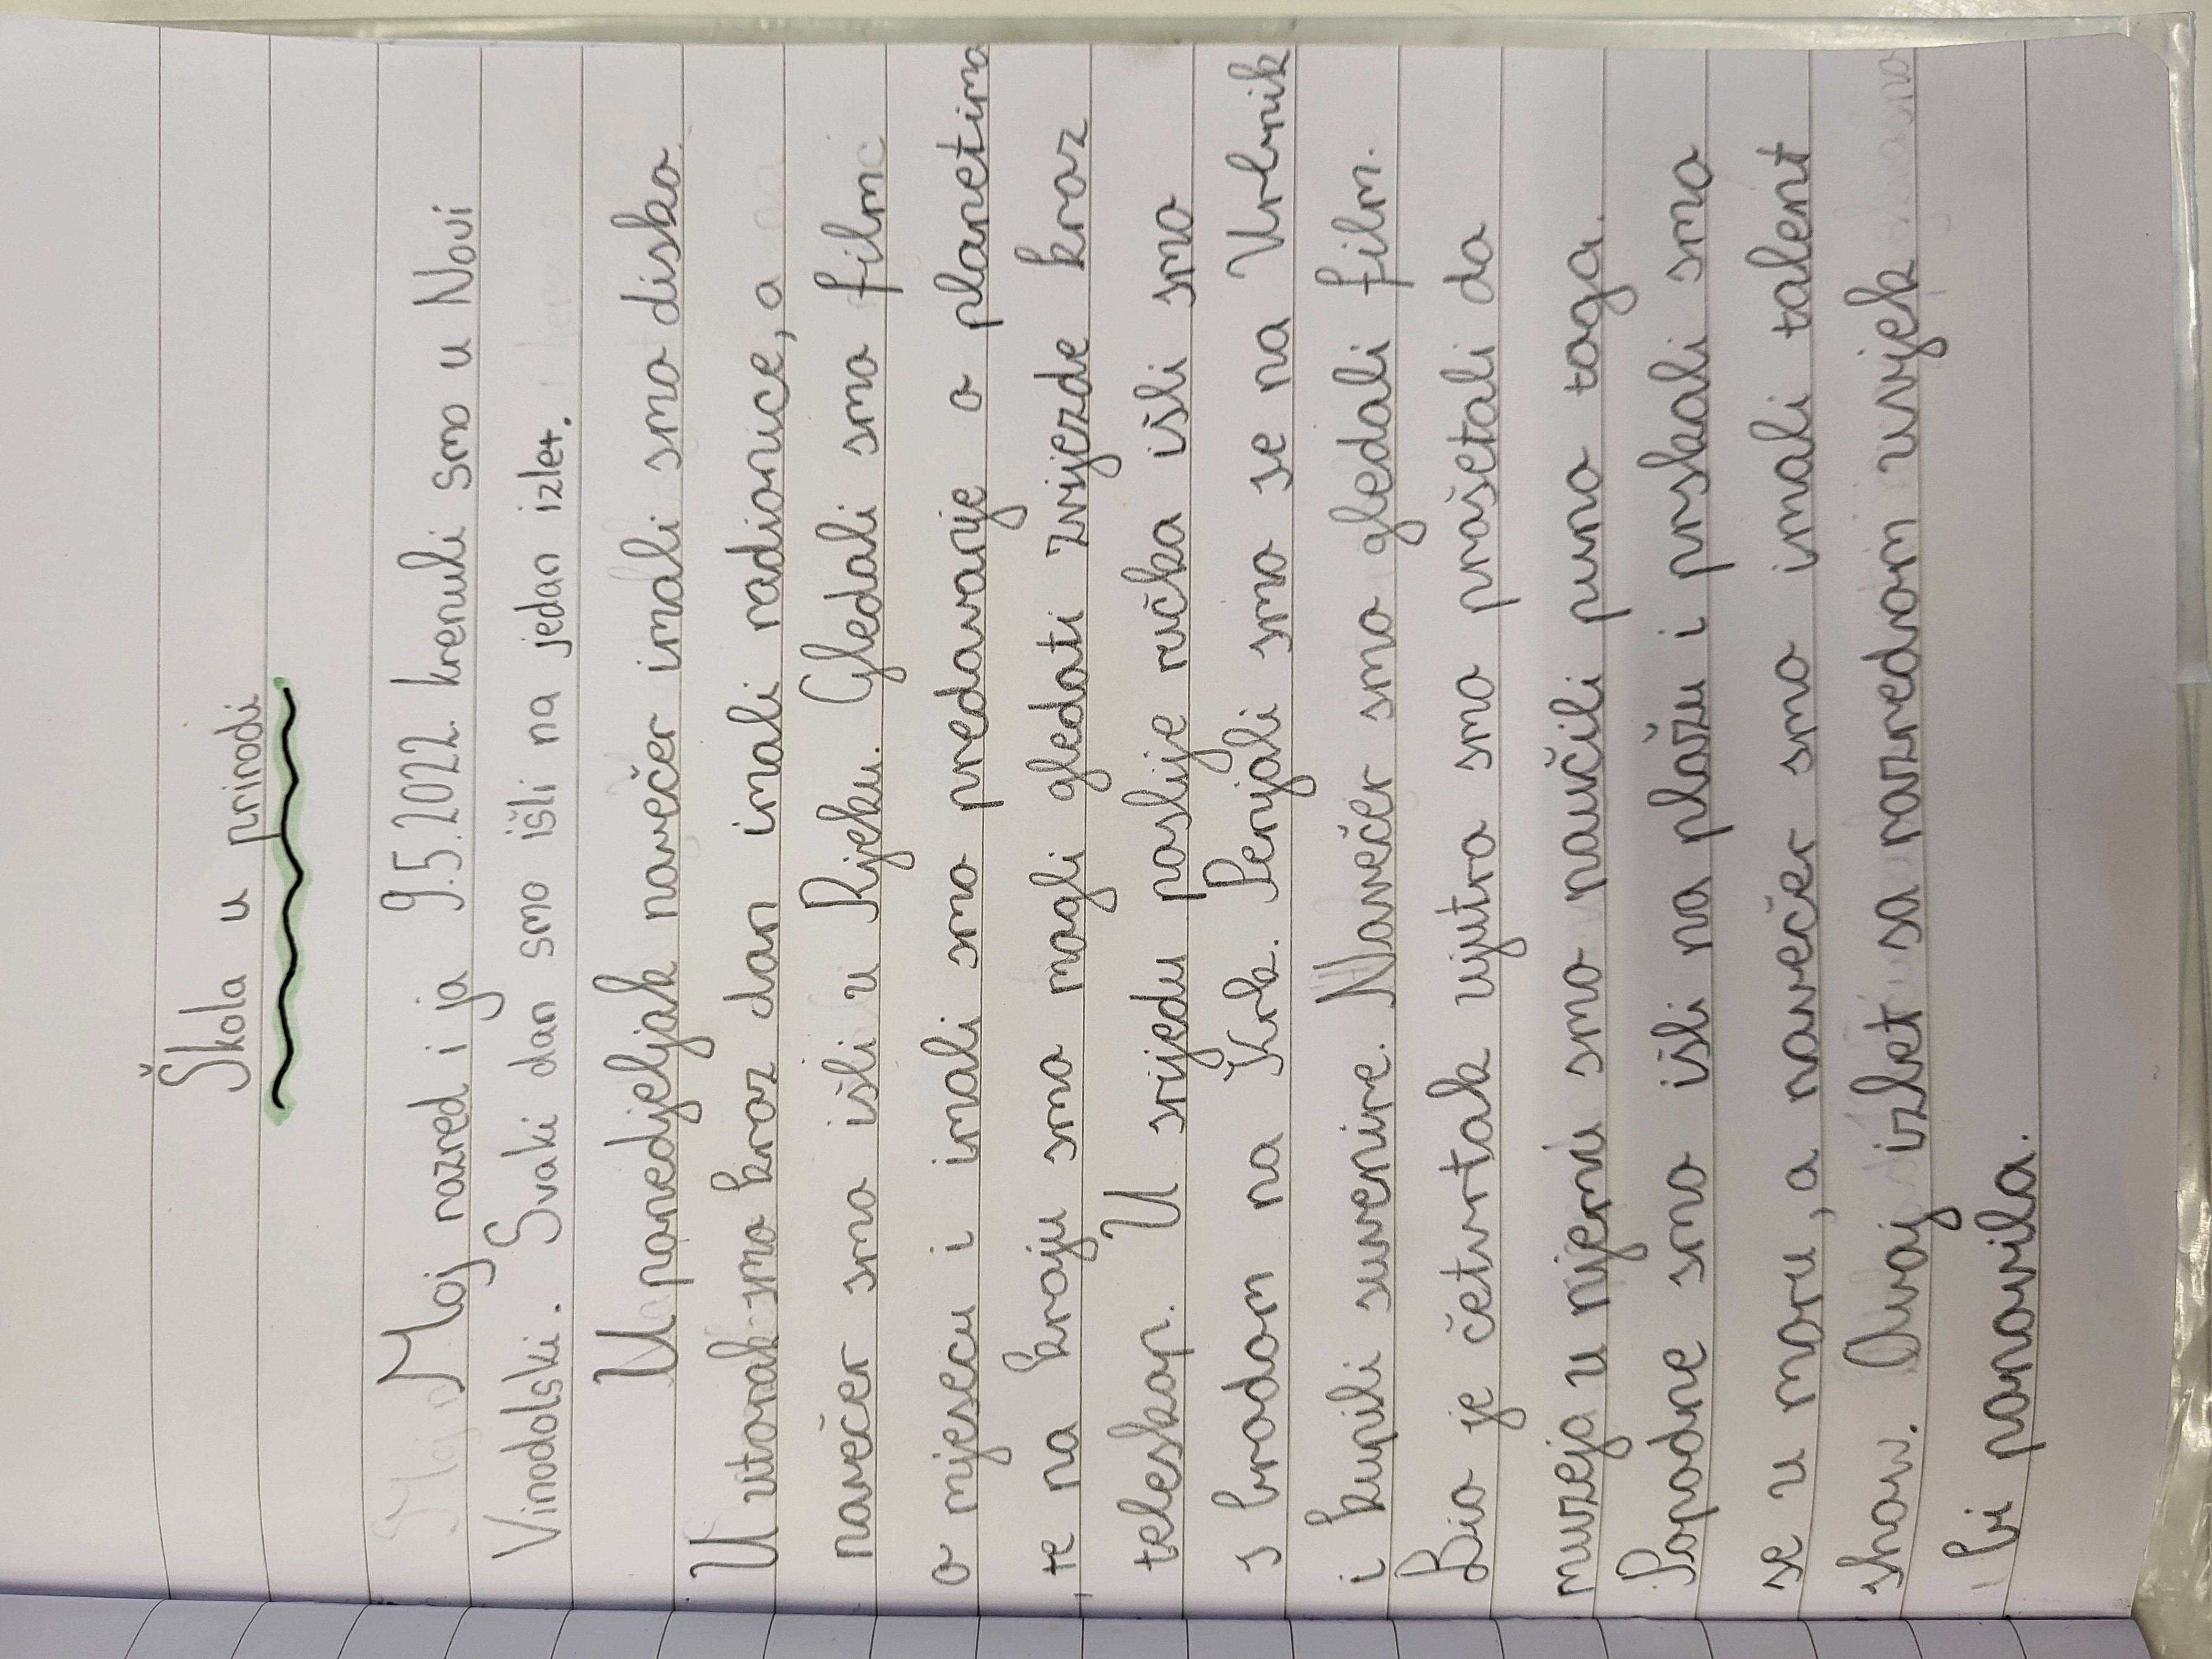 Škola u prirodi
Moj razred i ja 9.5.2022. krenuli smo u Novi
Vinodolski. Svaki dan smo išli na jedan izlet.
U ponedjeljak navečer imali smo disko.
U utorak smo kroz dan imali radionice, a
navečer smo išli u Rijeku. Gledali smo film
o mjesecu i imali smo predavanje o planetima
te na kraju smo mogli gledati zvijezde kroz
teleskop. U srijedu poslije ručka išli smo
s brodom na Krk. Penjali smo se na Vrbnik
i kupili suvenire. Navečer smo gledali film.
Bio je četvrtak ujutro smo prošetali do
muzeja u njemu smo naučili puno toga.
Popodne smo išli na plažu i prskali smo
se u moru, a navečer smo imali talent
show. Ovaj izlet sa razredom uvijek
bi ponovila.